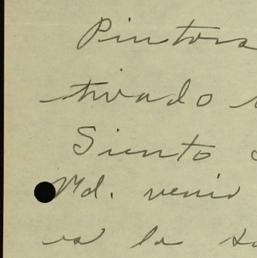 Pintors
tivado
Siento
Md. venir
es la